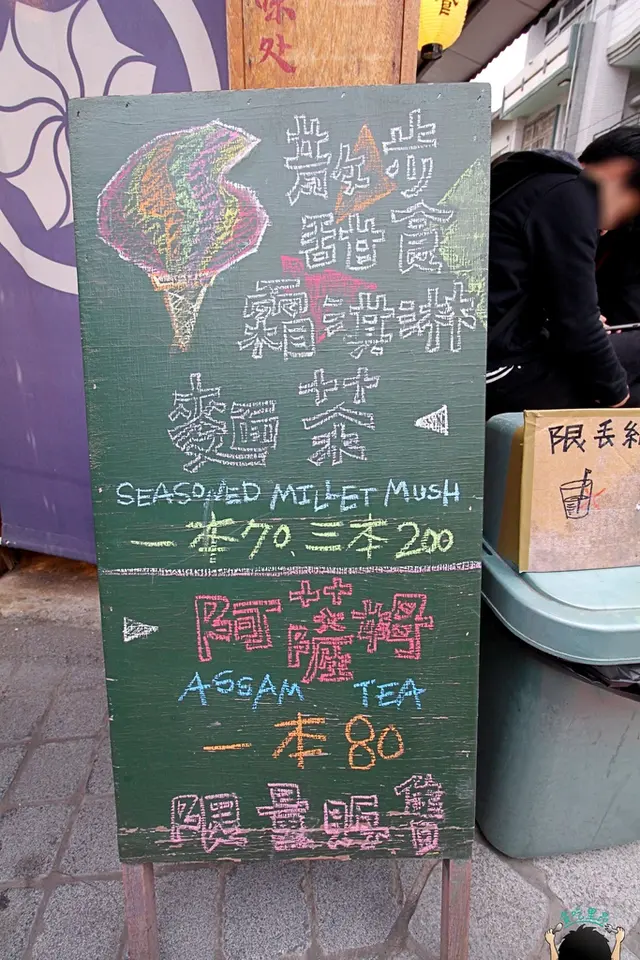 味
处
散步
甜食
霜淇淋
麵茶
SEASONED MILLET MUSH
一本70、三本200
阿薩姆
ASSAM TEA
一本80
限量販賣
限丟紙